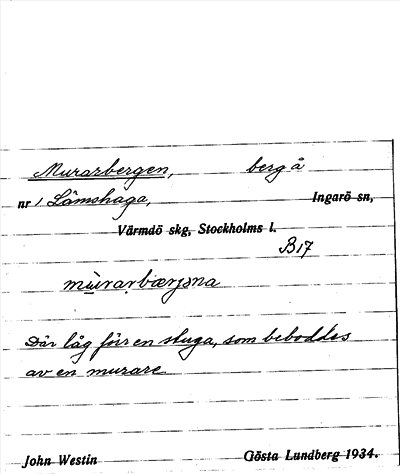 Murarbergen, berg å
nr 1 Lämshaga, Ingarö sn,
Värmdö skg, Stockholms l.
B17
mùrarbærjəna
Där låg förr en stuga, som beboddes
av en murare
John Westin Gösta Lundberg 1934.